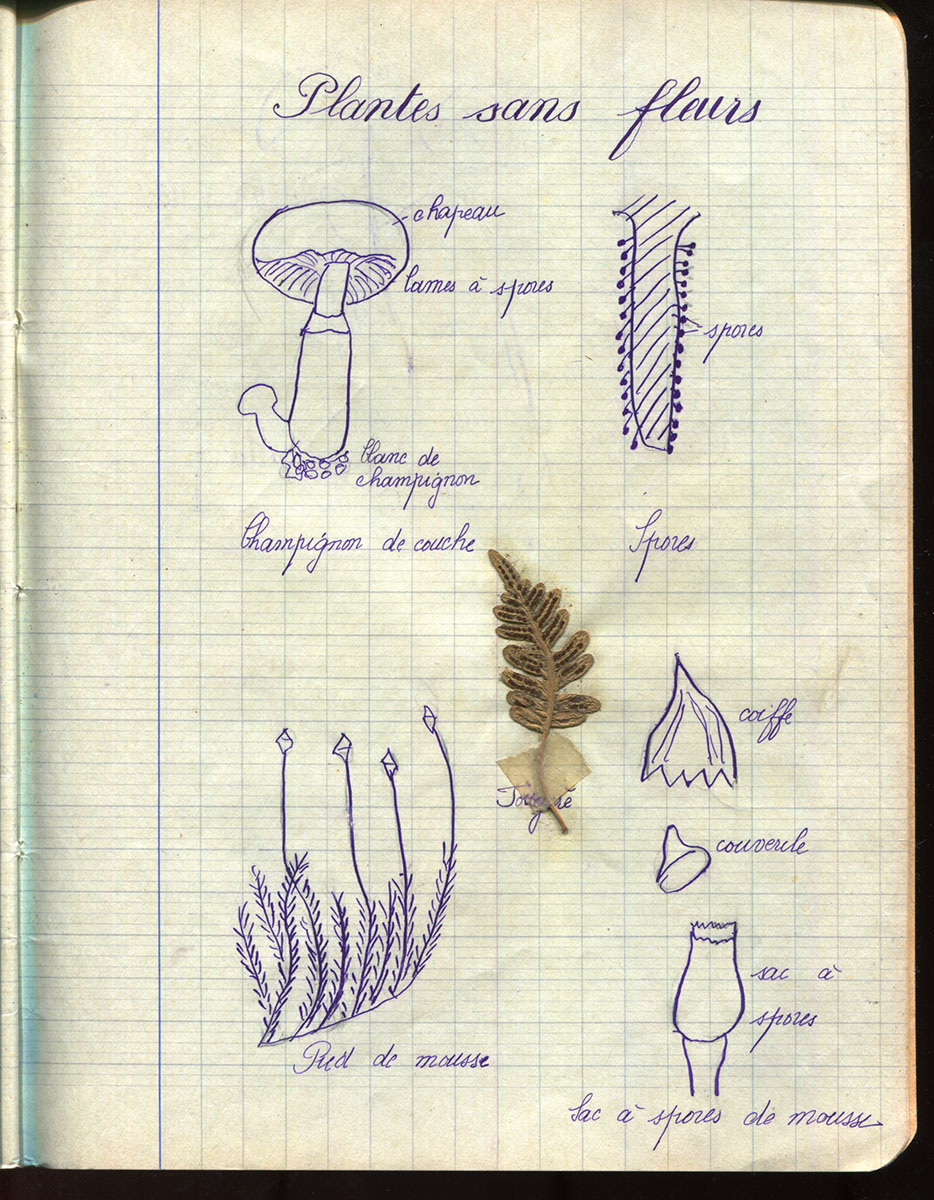 Plantes sans fleurs
chapeau
lames à spores
spores
blanc de
champignon
Champignon de couche
Spores
coiffe
couvercle
sac à
spores
Pied de mousse
Sac à spores de mousse